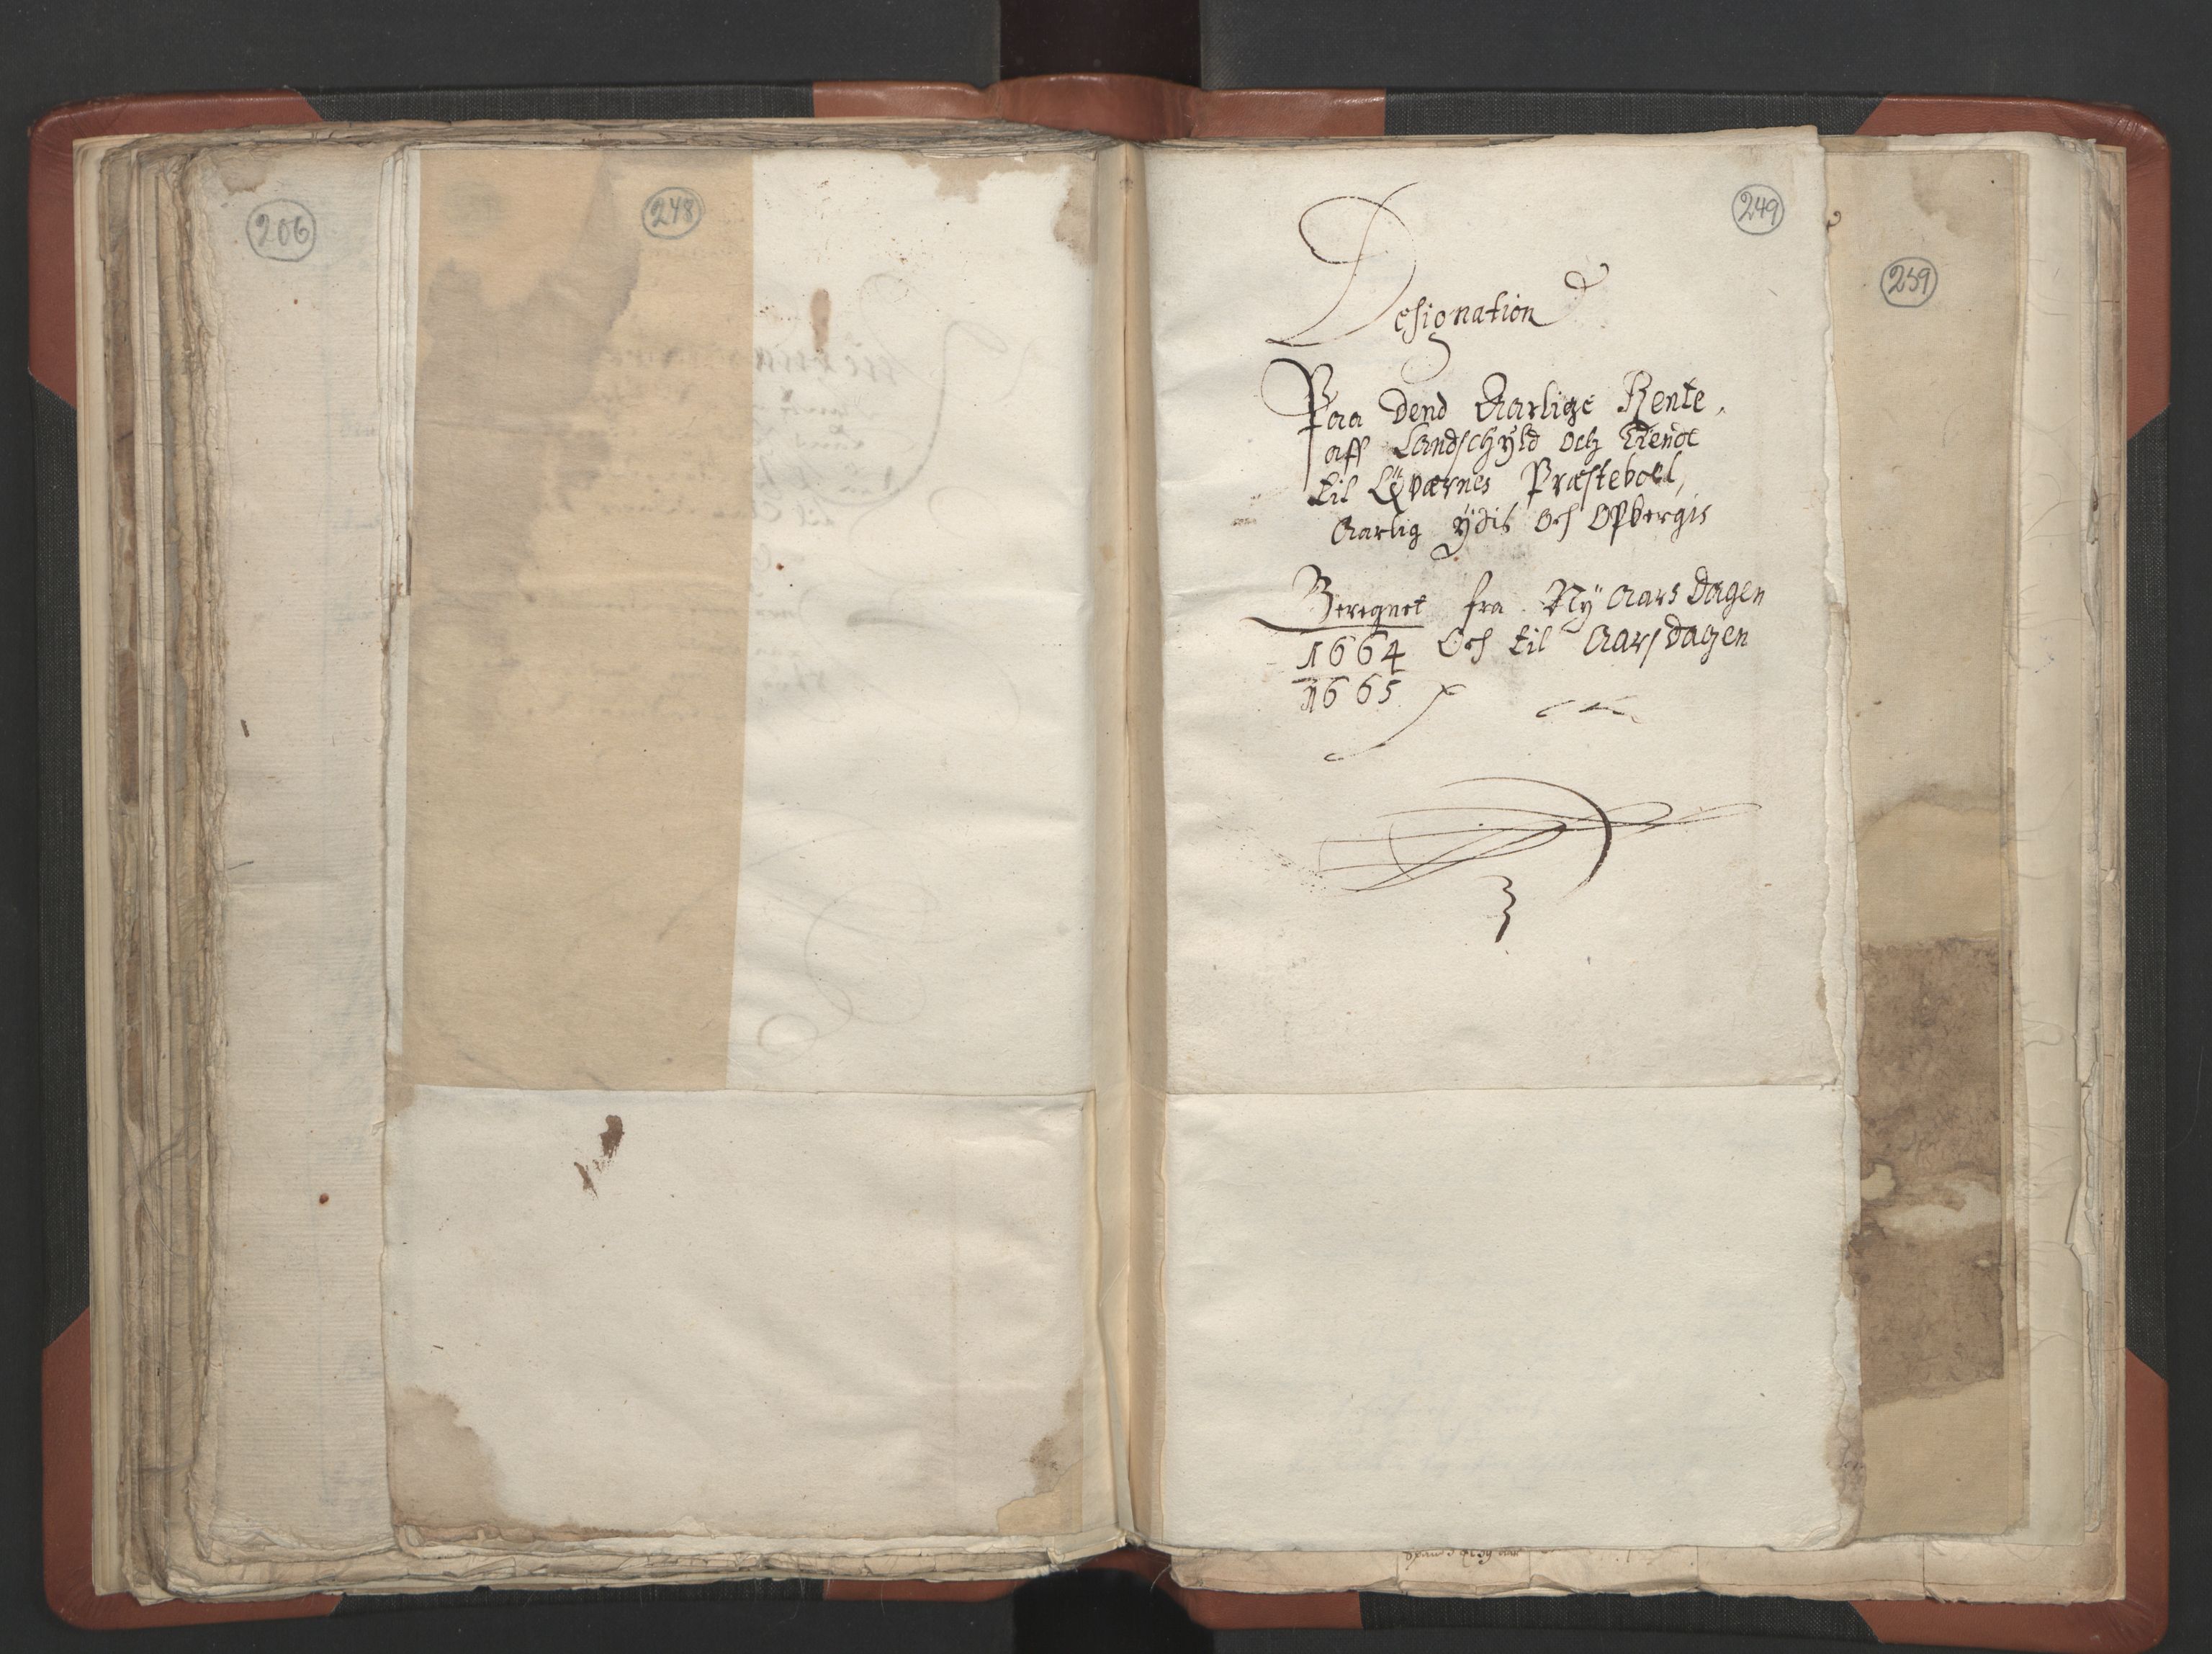 206
248
249
259
Designation
Paa Dend Aarlige Rente,
aff Landschyld och Tiende
til Qværnes Præsteboll,
Aarlig ÿdis Och Opbergis
Beregnet fra Nÿ Aars Dagen
1664 Och til Aarsdagen
1665